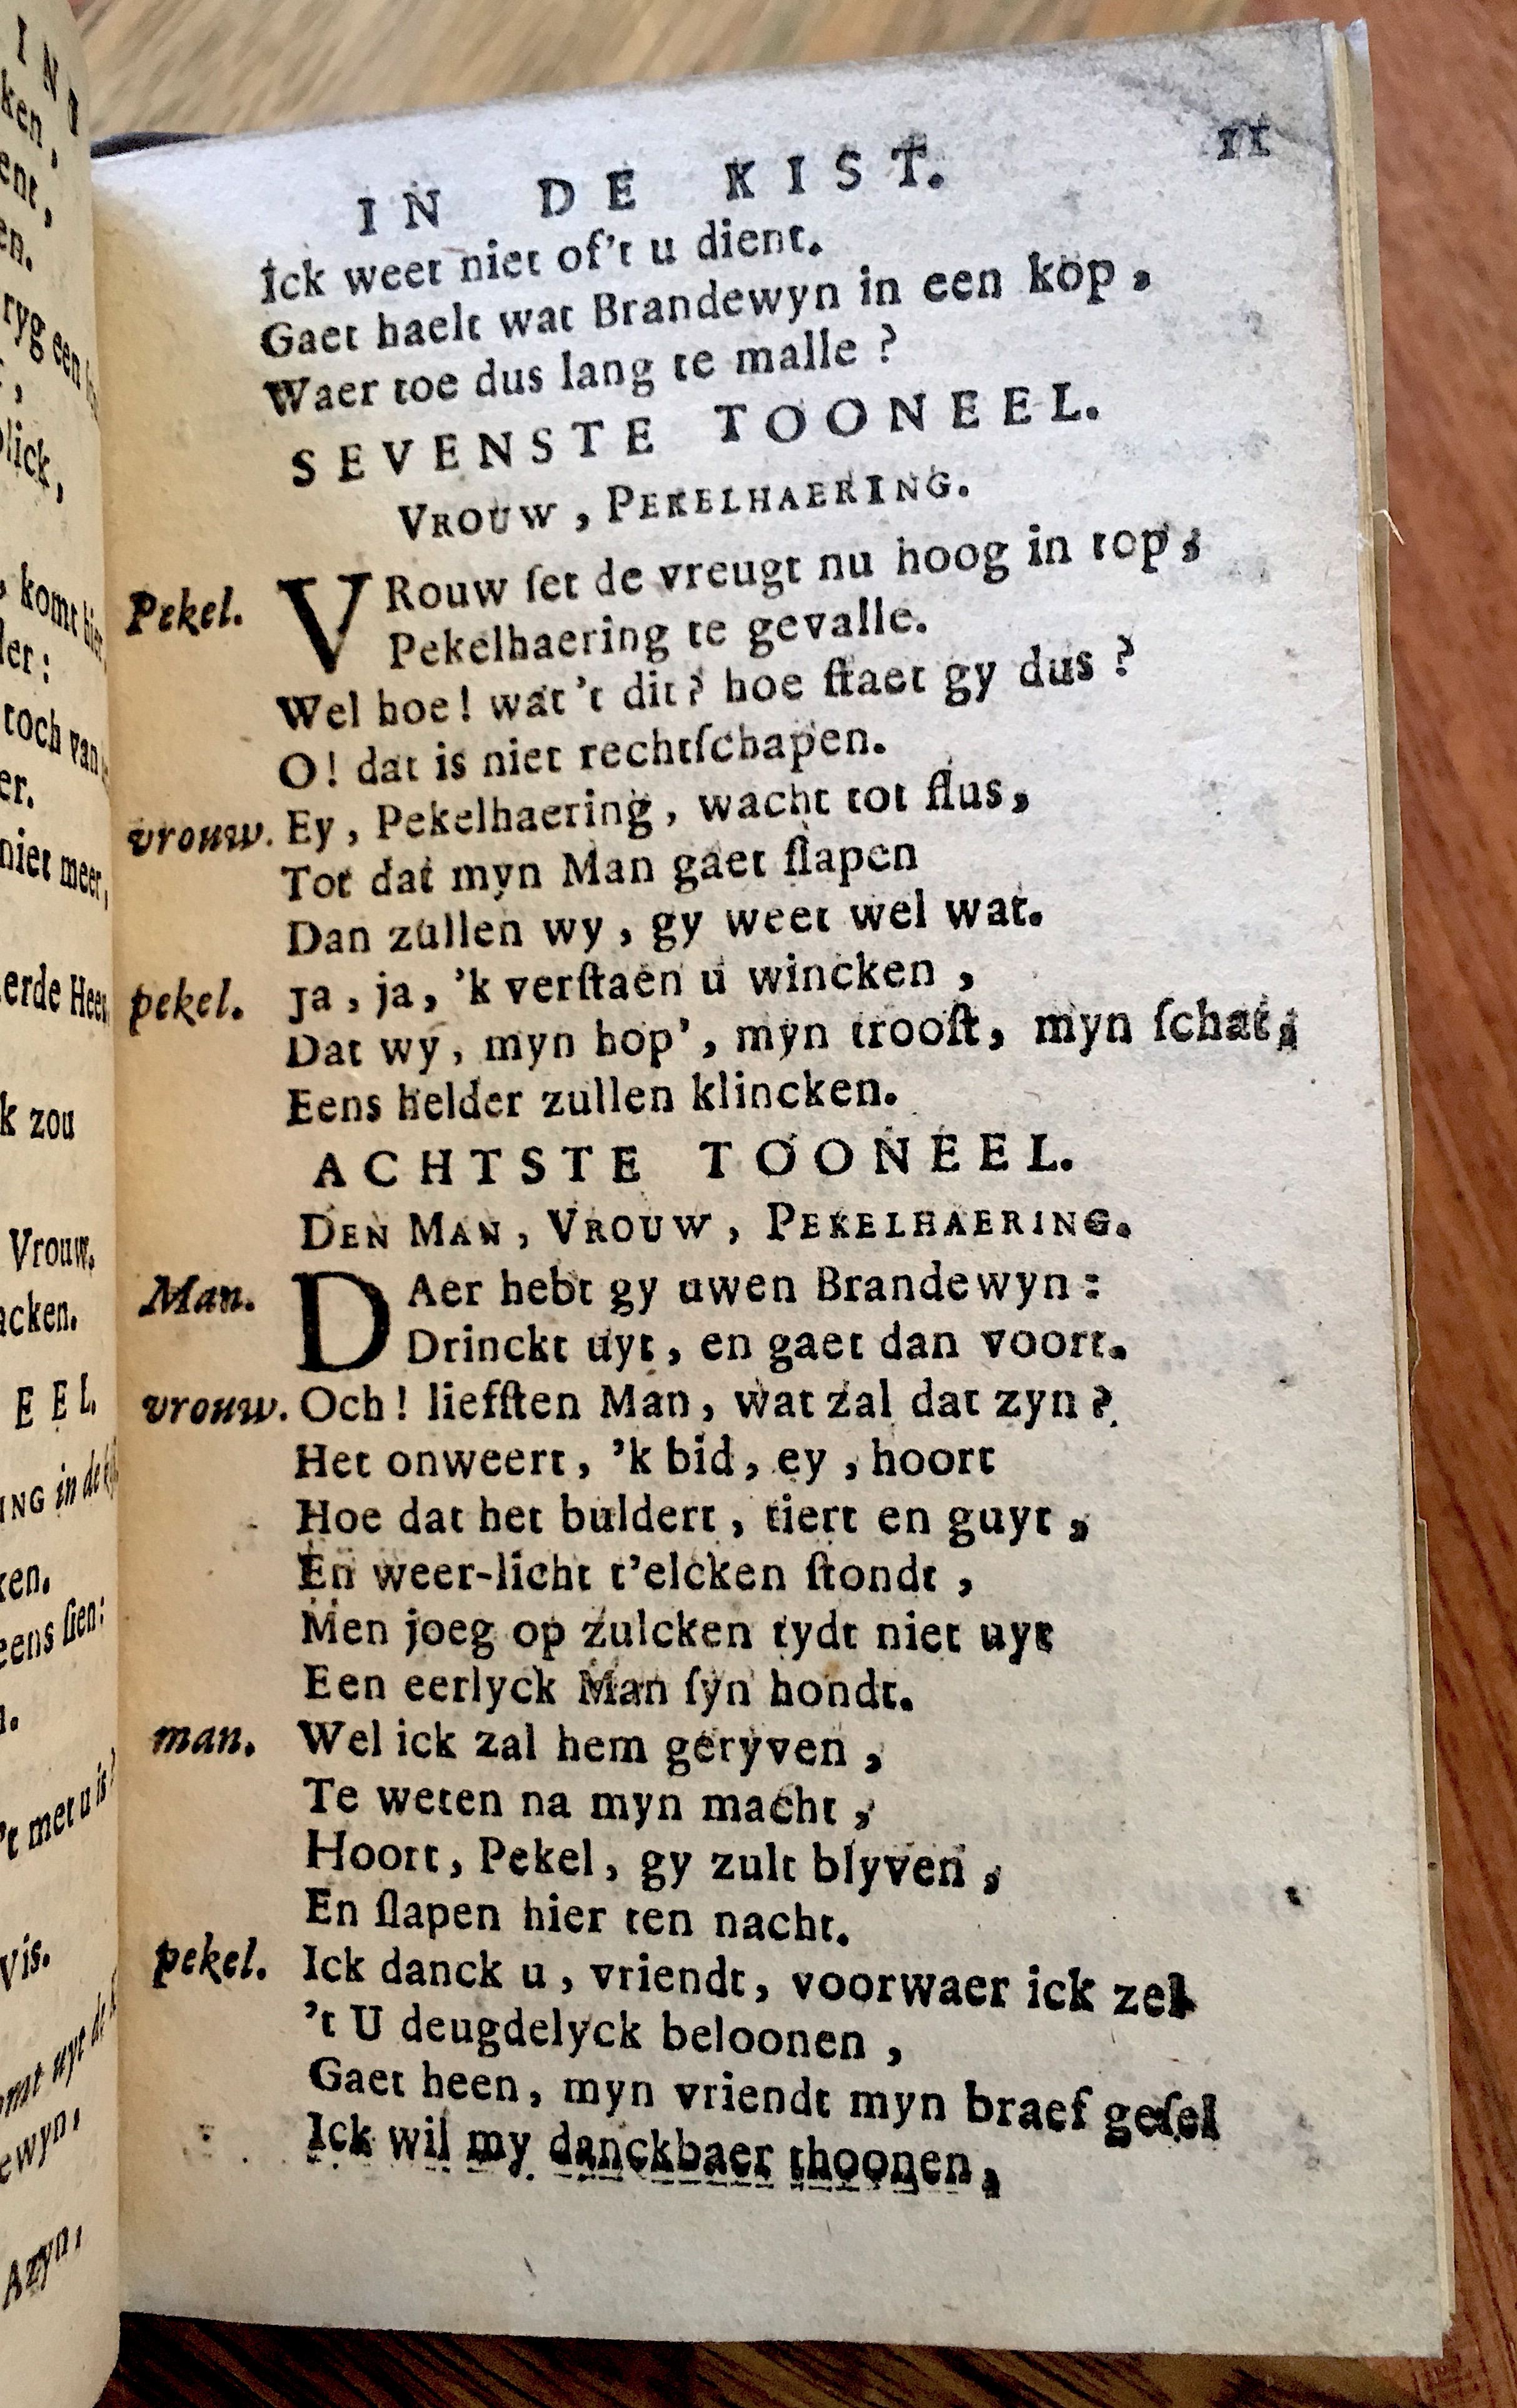 IN DE KIST. 11
Ick weet niet of't u dient.
Gaet haelt wat Brandewyn in een kop,
Waer toe dus lang te malle?
SEVENSTE TOONEEL.
VROUW, PEKELHAERING.
Pekel. VRouw ſet de vreugt nu hoog in top,
Pekelhaering te gevalle.
Wel hoe! wat 't dit? hoe ſtaet gy dus?
O! dat is niet rechtſchapen.
vrouw. Ey, Pekelhaering, wacht tot ſlus,
Tot dat myn Man gaet ſlapen
Dan zullen wy, gy weet wel wat.
pekel. Ja, ja, 'k verſtaen u wincken,
Dat wy, myn hop', myn trooſt, myn ſchat,
Eens helder zullen klincken.
ACHTSTE TOONEEL.
DEN MAN, VROUW, PEKELHAERING.
Man. DAer hebt gy uwen Brandewyn:
Drinckt uyt, en gaet dan voort.
vrouw. Och! liefſten Man, wat zal dat zyn?
Het onweert, 'k bid, ey, hoort
Hoe dat het buldert, tiert en guyt,
En weer-licht t'elcken ſtondt,
Men joeg op zulcken tydt niet uyt
Een eerlyck Man ſyn hondt.
man. Wel ick zal hem geryven,
Te weten na myn macht,
Hoort, Pekel, gy zult blyven,
En ſlapen hier ten nacht.
pekel. Ick danck u, vriendt, voorwaer ick zel
't U deugdelyck beloonen,
Gaet heen, myn vriendt myn braef geſel
Ick wil my danckbaer thoonen,
ken,
komt hier
toch van
er.
niet meer,
k zou
Vrouw.
EEL.
ING in de
eens ſien:
't met u is
Vis.
Azyn,